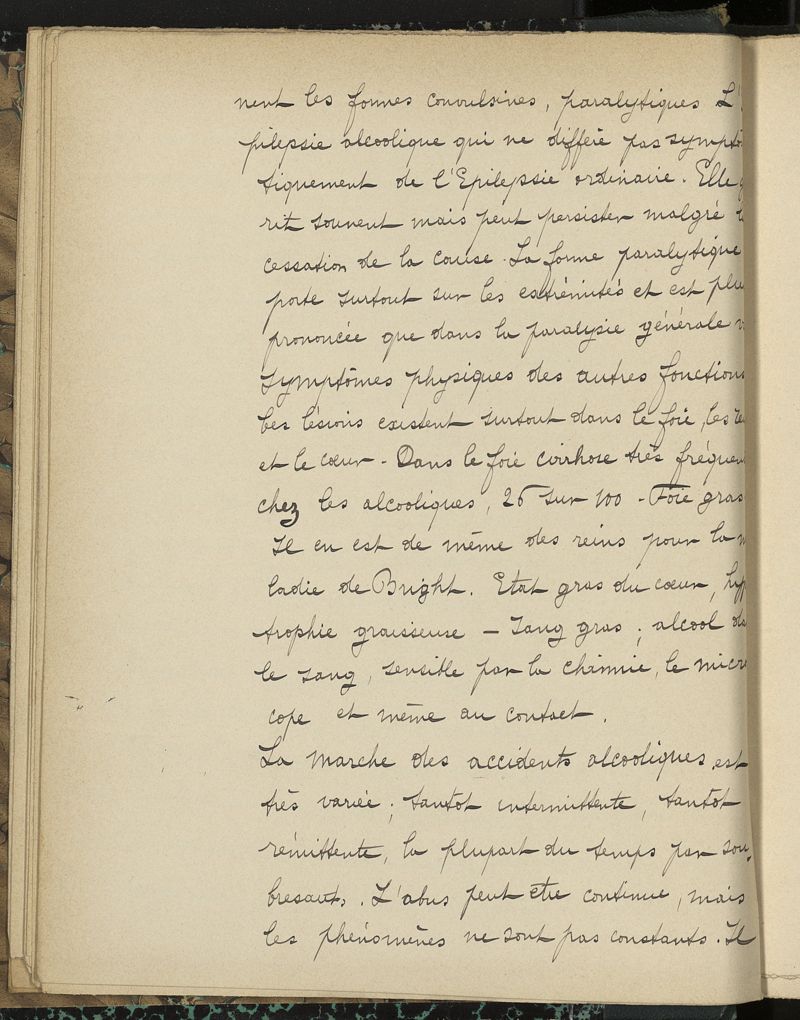 nent les formes convulsives, paralytiques L'
pilepsie alcoolique qui ne diffère pas symptô
tiquement de l'Epilepsie ordinaire. Elle g
rit souvent mais peut persister malgré l
cessation de la cause. La forme paralytique
porte surtout sur les extrémités et est plu
prononcée que dans la paralysie générale
symptômes physiques des autres fonctions
Les lésions existent surtout dans le foie, les re
et le cœur - Dans le foie cirrhose très fréquen
chez les alcooliques, 26 sur 100 - Foie gras
Il en est de même des reins pour la m
ladie de Bright. Etat gras du cœur, hyp
trophie graisseuse — Sang gras ; alcool da
le sang, sensible par la chimie, le micro
cope et même au contact.
La marche des accidents alcooliques est
très variée ; tantôt intermittente, tantôt
rémittente, la plupart du temps par sou-
bresauts. L'abus peut être continue, mais
les phénomènes ne sont pas constants. Il